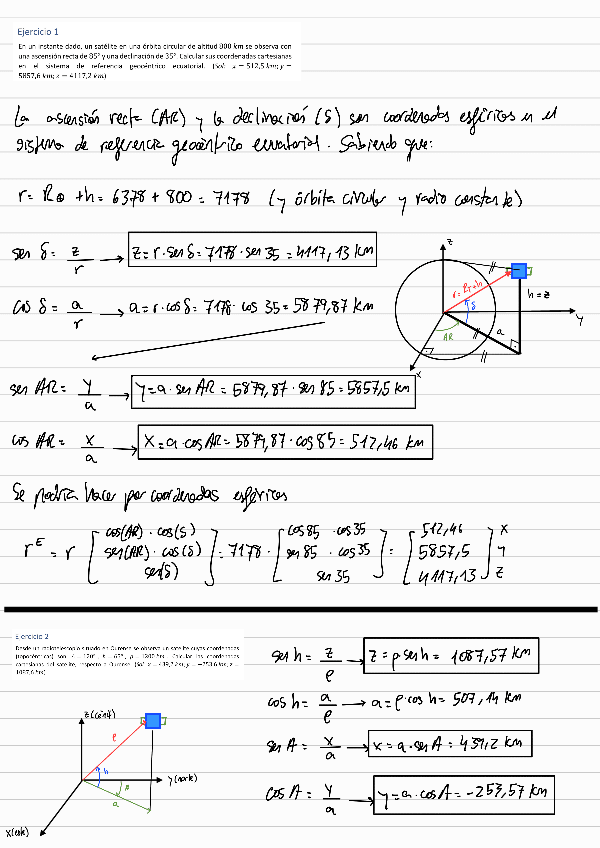 Ejercicio 1
En un instante dado, un satélite en una órbita circular de altitud 800 km se observa con
una ascensión recta de 85° y una declinación de 35°. Calcular sus coordenadas cartesianas
en el sistema de referencia geocéntrico ecuatorial. (Sol: x = 512,5 km; y =
5857,6 km; z = 4117,2 km)
La ascensión recta (AR) y la declinación (δ) son coordenadas esféricas en el
sistema de referencia geocéntrico ecuatorial. Sabiendo que:
r = R⊕ + h = 6378 + 800 = 7178 (y órbita circular y radio constante)
sen δ = z/r → z = r · sen δ = 7178 · sen 35 = 4117,13 km
cos δ = a/r → a = r · cos δ = 7178 · cos 35 = 5879,87 km
z
r = RT+h
δ
h = z
y
a
AR
x
sen AR = y/a → y = a · sen AR = 5879,87 · sen 85 = 5857,5 km
cos AR = x/a → x = a · cos AR = 5879,87 · cos 85 = 512,46 km
Se podría hacer por coordenadas esféricas
r^E = r [cos(AR) · cos(δ) sen(AR) · cos(δ) sen(δ)] = 7178 · [cos 85 · cos 35 sen 85 · cos 35 sen 35] = [512,46 5857,5 4117,13] x y z
Ejercicio 2
Desde un radiotelescopio situado en Ourense se observa un satélite cuyas coordenadas
cartesianas del satélite, respecto a Ourense.
sen h = z/ρ → z = ρ sen h = 1087,57 km
cos h = a/ρ → a = ρ · cos h = 507,14 km
sen A = x/a → x = a · sen A = 439,2 km
cos A = y/a → y = a · cos A = -253,57 km
z (cénit)
ρ
h
y (norte)
A
a
x (este)